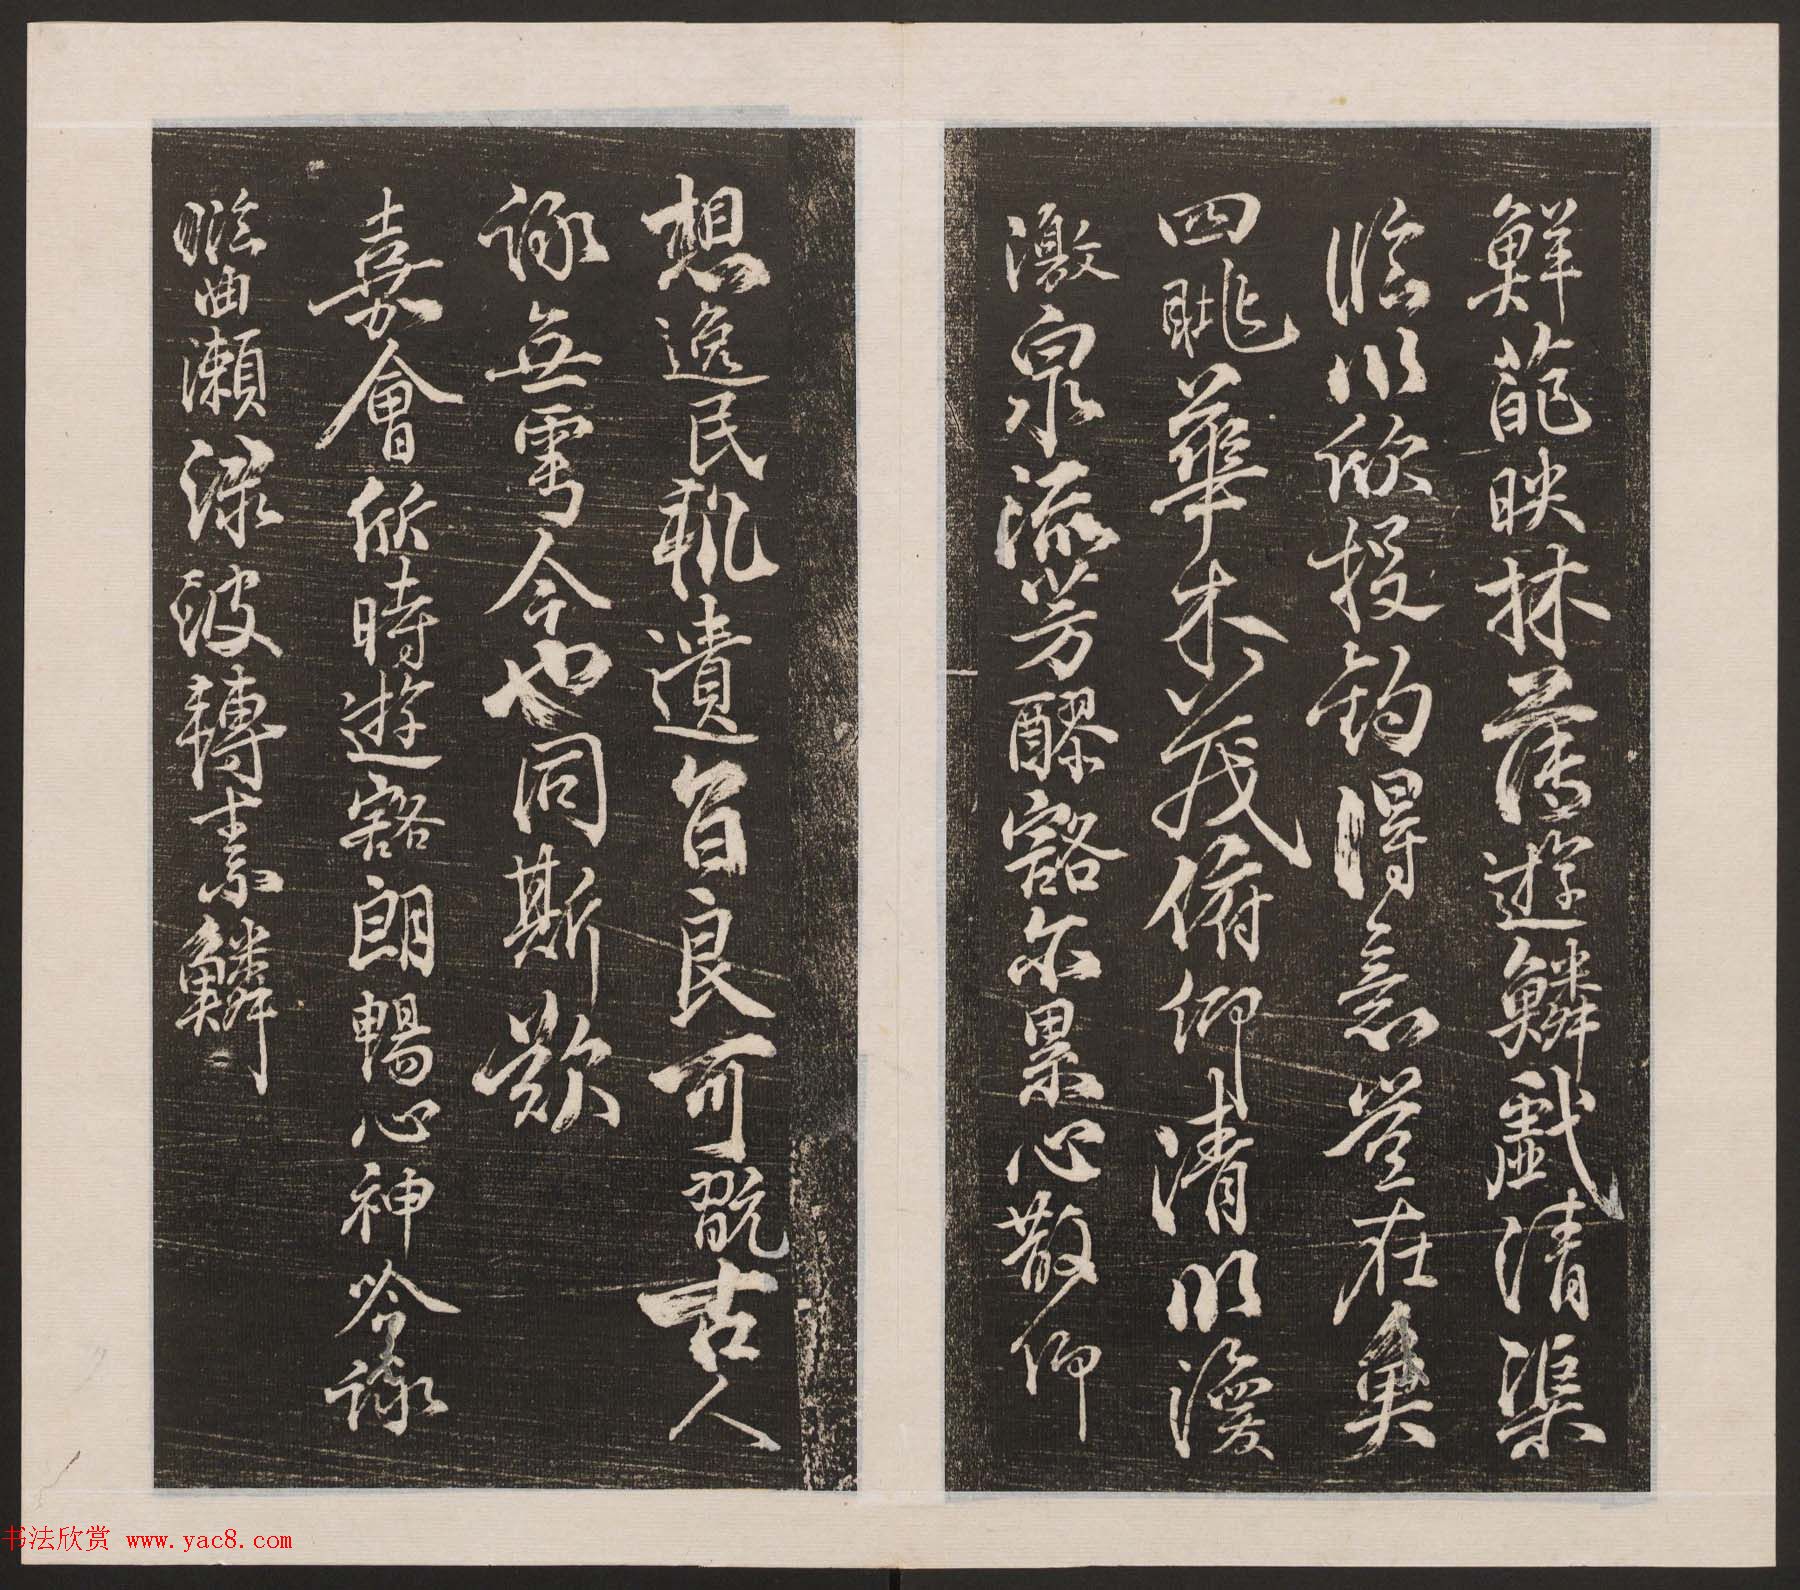 鮮葩映林薄遊鱗戲清渠
臨川欣投釣得意豈在魚
四眺華木茂俯仰清川渙
激泉流芳醪豁尒累心散仰
想逸民軌遺音良可翫古人
詠無雩今也同斯歎
嘉會欣時遊豁朗暢心神吟詠
臨曲瀨淥波轉素鱗
书法欣赏 www.yac8.com